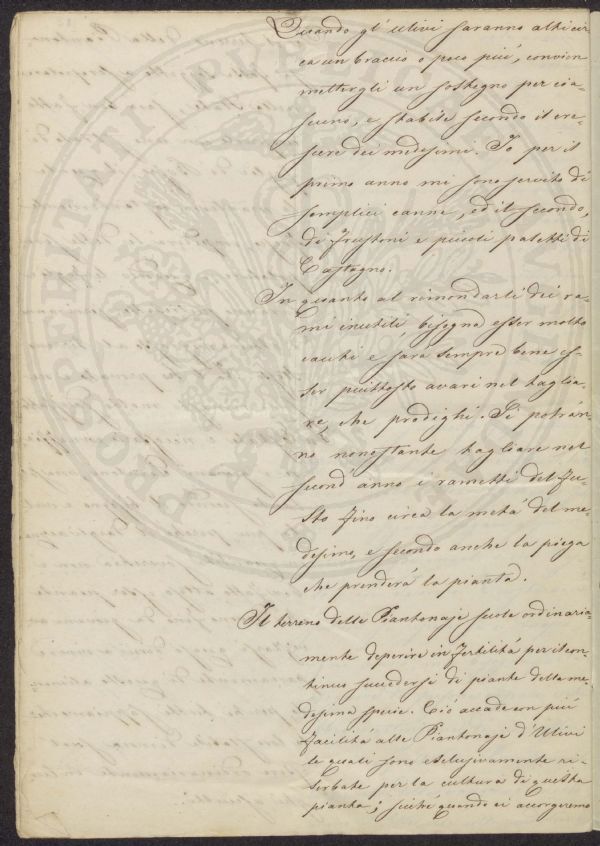 Quando gl' ulivi saranno alti cir
ca un braccio o poco più, convien
mettergli un sostegno per cia-
scuno, e stabile secondo il cre-
scere dei medesimi. Io per il
primo anno mi sono servito di
semplici canne, ed il secondo,
di frustoni e piccoli paletti di
Castagno.
In quanto al rimondarli dei ra-
mi inutili, bisogna esser molto
cauti e sarà sempre bene es-
ser piuttosto avari nel taglia-
re, che prodighi. Si potran-
no nonostante tagliare nel
second' anno i rametti del fu-
sto fino circa la metà del me-
desimo, e secondo anche la piega
che prenderà la pianta.
Il terreno delle Piantonaje suole ordinaria-
mente deperire in fertilità per il con-
tinuo succedersi di piante della me-
desima specie. Ciò accade con più
facilità alle Piantonaje d'Ulivi
le quali sono esclusivamente ri-
serbate per la cultura di questa
pianta; sicché quando ci accorgeremo
PROSPERITATI PUBLICAE